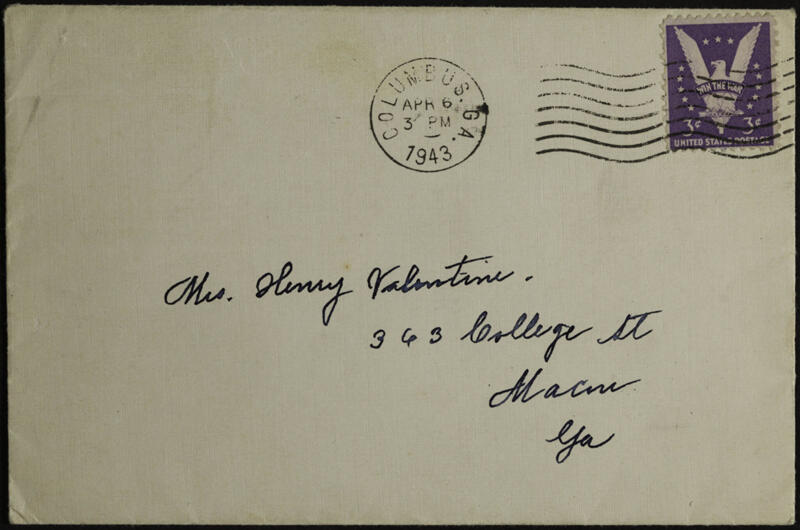 COLUMBUS, GA.
APR 6
3 PM
1943
WIN THE WAR
3¢ 3¢
UNITED STATES POSTAGE
Mrs. Henry Valentine.
363 College St
Macon
Ga